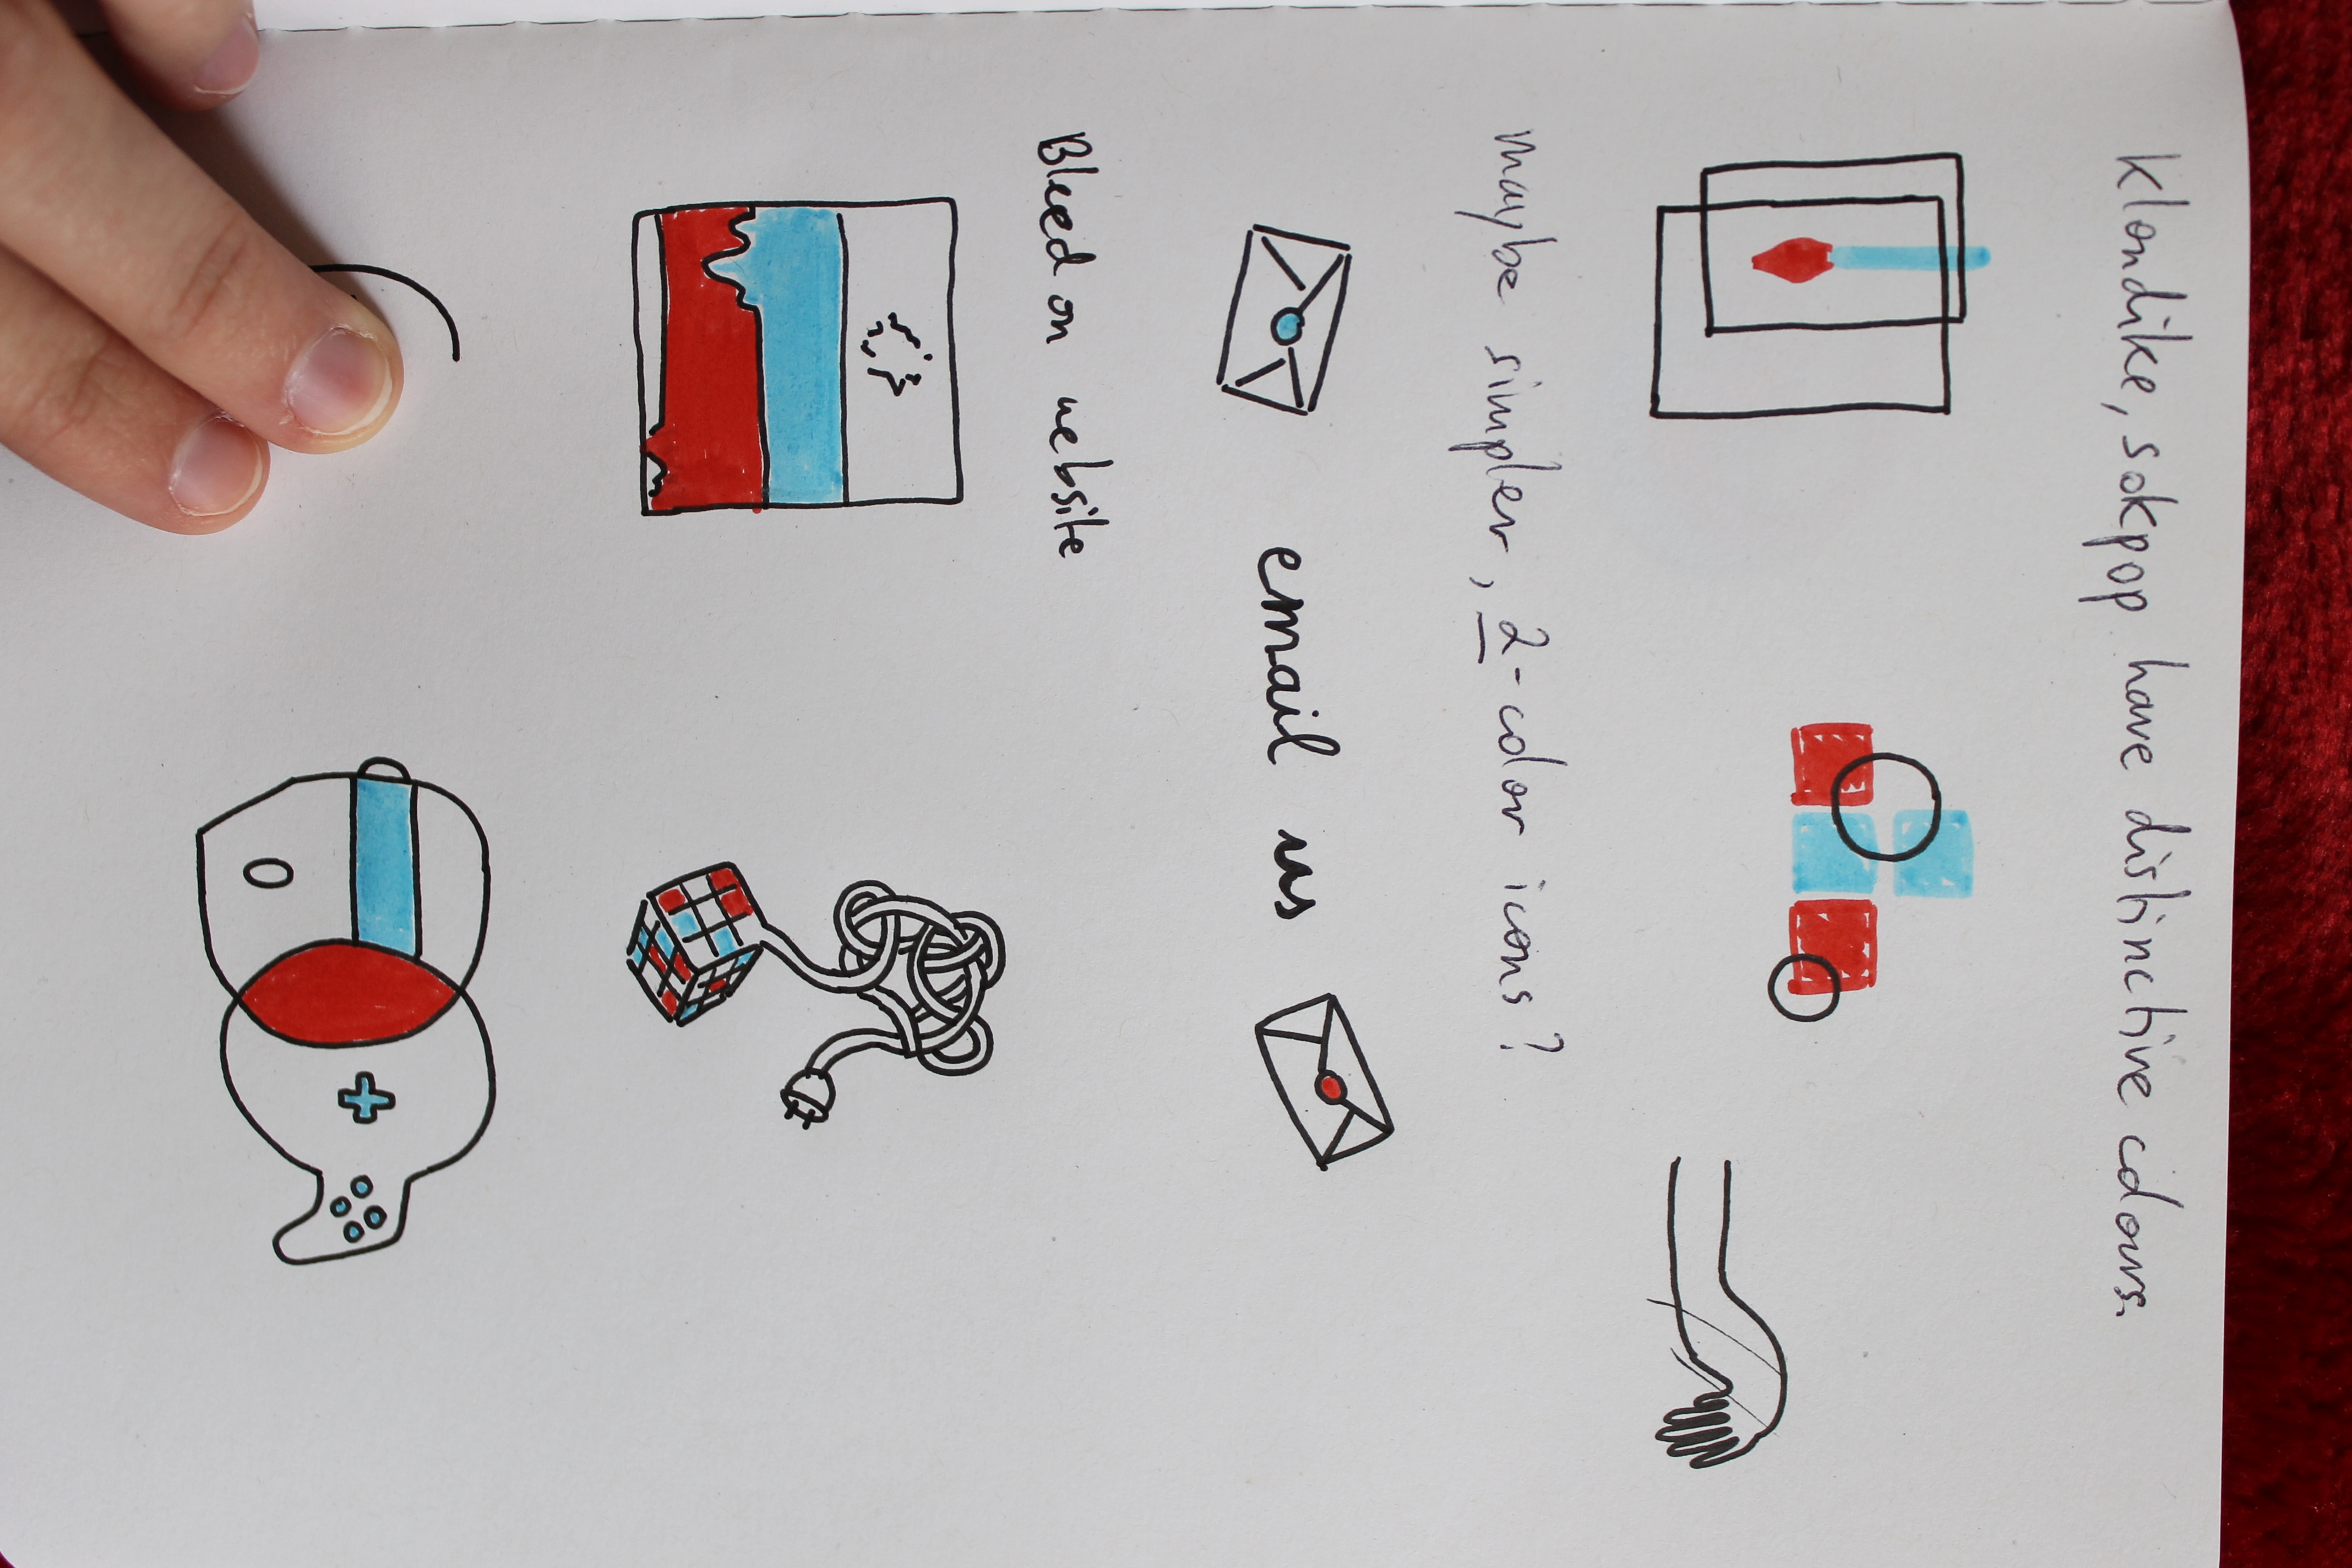 Klondike, sokpop have distinctive colours.
maybe simpler, 2-color icons?
email us
Bleed on website